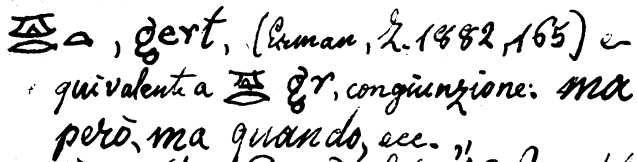 𓎼𓂋𓏏, gert, (Erman, Z. 1882, 165) e-
quivalente a 𓎼𓂋 gr, congiunzione: ma
però, ma quando, ecc. „